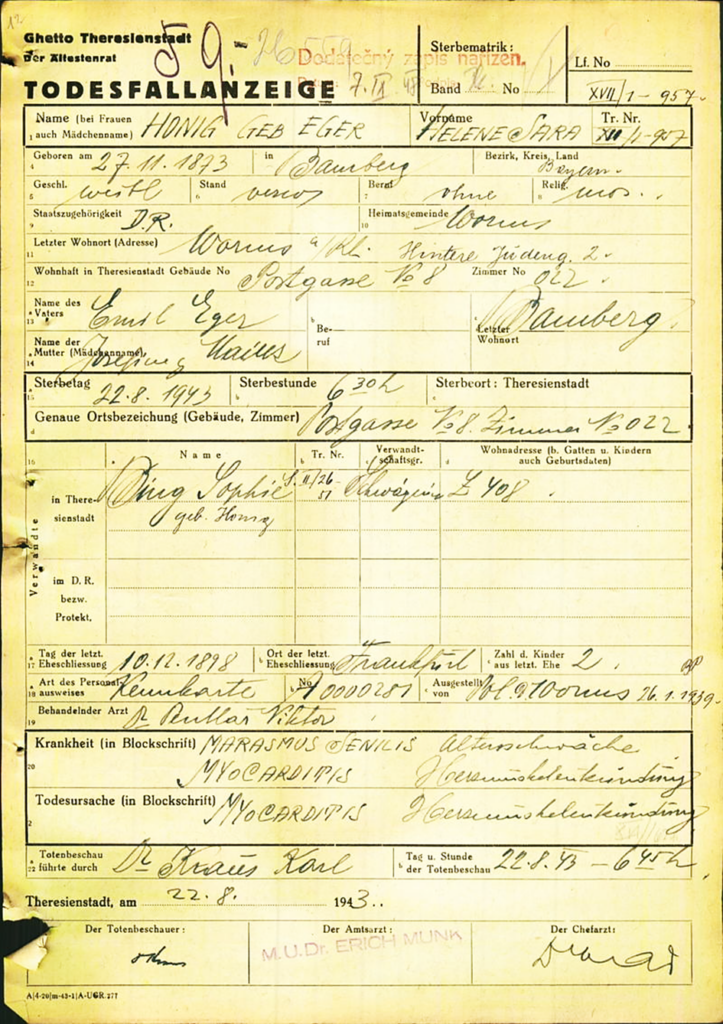 Ghetto Theresienstadt
Der Ältestenrat
59.-
Dodatečný zápis nařízen.
TODESFALLANZEIGE
Sterbematrik:
Band No
Lf. No
XVII/1-957.
Name (bei Frauen auch Mädchenname) HÖNIG GEB EGER
Vorname HELENE SARA
Tr. Nr. XVII/1-957
Geboren am 27.11.1873 in Bamberg Bezirk, Kreis, Land Bayern.
Geschl. weibl Stand verw Beruf ohne Relig. mos.
Staatszugehörigkeit D.R. Heimatsgemeinde Worms
Letzter Wohnort (Adresse) Worms a/Rh. Hintere Judeng. 2.
Wohnhaft in Theresienstadt Gebäude No Postgasse No 8 Zimmer No 022.
Name des Vaters Emil Eger Beruf Letzter Wohnort Bamberg
Name der Mutter (Mädchenname)
Sterbetag 22.8.1943 Sterbestunde 6 30 h Sterbeort: Theresienstadt
Genaue Ortsbezeichnung (Gebäude, Zimmer) Postgasse No 8. Zimmer No 022.
Name Tr. Nr. Verwandtschaftsgr. Wohnadresse (b. Gatten u. Kindern auch Geburtsdaten)
Verwandte
in Theresienstadt Sophie Schwägerin Z 408.
geb. Hönig
im D. R. bezw. Protekt.
Tag der letzt. Eheschliessung 10.12.1898 Ort der letzt. Eheschliessung Frankfurt Zahl d. Kinder aus letzt. Ehe 2.
Art des Personalausweises Kennkarte No A0000281 Ausgestellt von Pol. Worms 26.1.1939.
Behandelnder Arzt Dr Viktor
Krankheit (in Blockschrift) MARASMUS SENILIS Altersschwäche
MYOCARDITIS Herzmuskelentzündung
Todesursache (in Blockschrift) MYOCARDITIS Herzmuskelentzündung
Totenbeschau führte durch Dr Kraus Karl Tag u. Stunde der Totenbeschau 22.8.43 - 6 45 h
Theresienstadt, am 22.8. 1943..
Der Totenbeschauer: Der Amtsarzt: Der Chefarzt:
M.U.Dr. ERICH MUNK
A|4-20|m-43-1|A-UGR.277